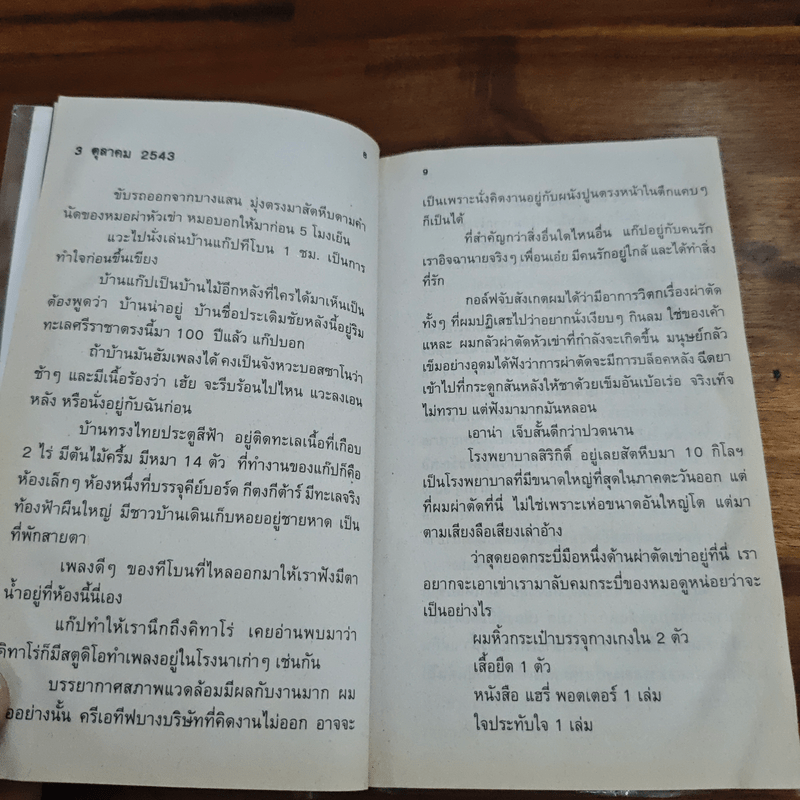 3 ตุลาคม 2543
8
ขับรถออกจากบางแสน มุ่งตรงมาสัตหีบตามคำ
นัดของหมอผ่าหัวเข่า หมอบอกให้มาก่อน 5 โมงเย็น
แวะไปนั่งเล่นบ้านแก๊ปทีโบน 1 ชม. เป็นการ
ทำใจก่อนขึ้นเขียง
บ้านแก๊ปเป็นบ้านไม้อีกหลังที่ใครได้มาเห็นเป็น
ต้องพูดว่า บ้านน่าอยู่ บ้านชื่อประเดิมชัยหลังนี้อยู่ริม
ทะเลศรีราชาตรงนี้มา 100 ปีแล้ว แก๊ปบอก
ถ้าบ้านมันฮัมเพลงได้ คงเป็นจังหวะบอสซาโนว่า
ช้าๆ และมีเนื้อร้องว่า เฮ้ย จะรีบร้อนไปไหน แวะลงเอน
หลัง หรือนั่งอยู่กับฉันก่อน
บ้านทรงไทยประตูสีฟ้า อยู่ติดทะเลเนื้อที่เกือบ
2 ไร่ มีต้นไม้ครึ้ม มีหมา 14 ตัว ที่ทำงานของแก๊ปก็คือ
ห้องเล็กๆ ห้องหนึ่งที่บรรจุคีย์บอร์ด กีตงกีต้าร์ มีทะเลจริง
ท้องฟ้าผืนใหญ่ มีชาวบ้านเดินเก็บหอยอยู่ชายหาด เป็น
ที่พักสายตา
เพลงดีๆ ของทีโบนที่ไหลออกมาให้เราฟังมีตา
น้ำอยู่ที่ห้องนี้นี่เอง
แก๊ปทำให้เรานึกถึงคิทาโร่ เคยอ่านพบมาว่า
คิทาโร่ก็มีสตูดิโอทำเพลงอยู่ในโรงนาเก่าๆ เช่นกัน
บรรยากาศสภาพแวดล้อมมีผลกับงานมาก ผม
ออย่างนั้น ครีเอทีฟบางบริษัทที่คิดงานไม่ออก อาจจะ
9
เป็นเพราะนั่งคิดงานอยู่กับผนังปูนตรงหน้าในตึกแคบๆ
ก็เป็นได้
ที่สำคัญกว่าสิ่งอื่นใดไหนอื่น แก๊ปอยู่กับคนรัก
เราอิจฉานายจริงๆ เพื่อนเอ๋ย มีคนรักอยู่ใกล้ และได้ทำสิ่ง
ที่รัก
กอล์ฟจับสังเกตผมได้ว่ามีอาการวิตกเรื่องผ่าตัด
ทั้งๆ ที่ผมปฏิเสธไปว่าอยากนั่งเงียบๆ กินลม ใช่ของเค้า
แหละ ผมกลัวผ่าตัดหัวเข่าที่กำลังจะเกิดขึ้น มนุษย์กลัว
เข็มอย่างอุดมได้ฟังว่าการผ่าตัดจะมีการบล็อคหลัง ฉีดยา
เข้าไปที่กระดูกสันหลังให้ชาด้วยเข็มอันเบ้อเร่อ จริงเท็จ
ไม่ทราบ แต่ฟังมามากมันหลอน
เอาน่า เจ็บสั้นดีกว่าปวดนาน
โรงพยาบาลสิริกิติ์ อยู่เลยสัตหีบมา 10 กิโลฯ
เป็นโรงพยาบาลที่มีขนาดใหญ่ที่สุดในภาคตะวันออก แต่
ที่ผมผ่าตัดที่นี่ ไม่ใช่เพราะเห่อขนาดอันใหญ่โต แต่มา
ตามเสียงลือเสียงเล่าอ้าง
ว่าสุดยอดกระบี่มือหนึ่งด้านผ่าตัดเข่าอยู่ที่นี่ เรา
อยากจะเอาเข่าเรามาลับคมกระบี่ของหมอดูหน่อยว่าจะ
เป็นอย่างไร
ผมหิ้วกระเป๋าบรรจุกางเกงใน 2 ตัว
เสื้อยืด 1 ตัว
หนังสือ แฮรี่ พอตเตอร์ 1 เล่ม
ใจประทับใจ 1 เล่ม